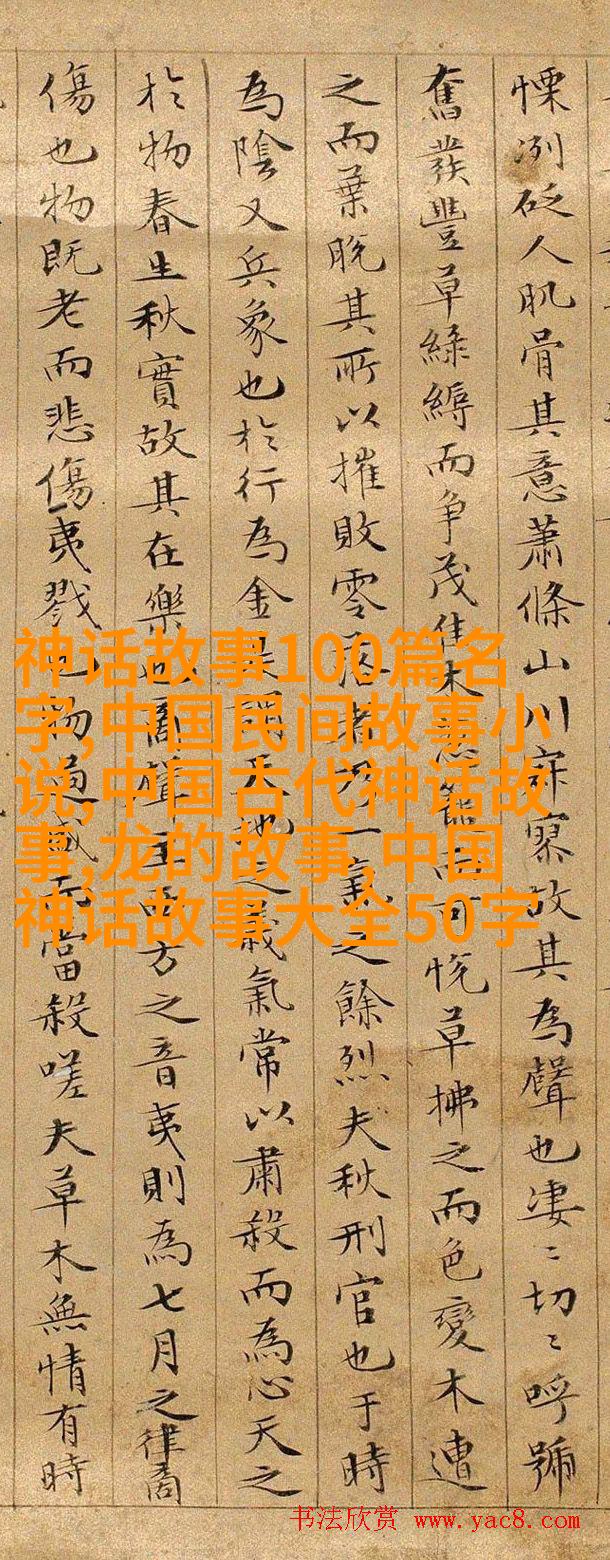 慄冽砭人肌骨其意蕭條山川寂寥故其為聲也淒〻切〻呼號
奮發豐草綠縟而争茂佳木葱籠而可悅草拂之而色變木遭
之而葉脫其所以摧敗零落者乃一氣之餘烈夫秋刑官也于時
為陰又兵象也於行為金是謂天地之義氣常以肅殺而為心天之
於物春生秋實故其在樂也商聲主西方之音夷則為七月之律商
傷也物既老而悲傷夷戮也物過盛而當殺嗟夫草木無情有時
神话故事100篇名
字,中国民间故事小
说,中国古代神话故
事,龙的故事,中国
神话故事大全50字
书法欣赏 www.yac8.com